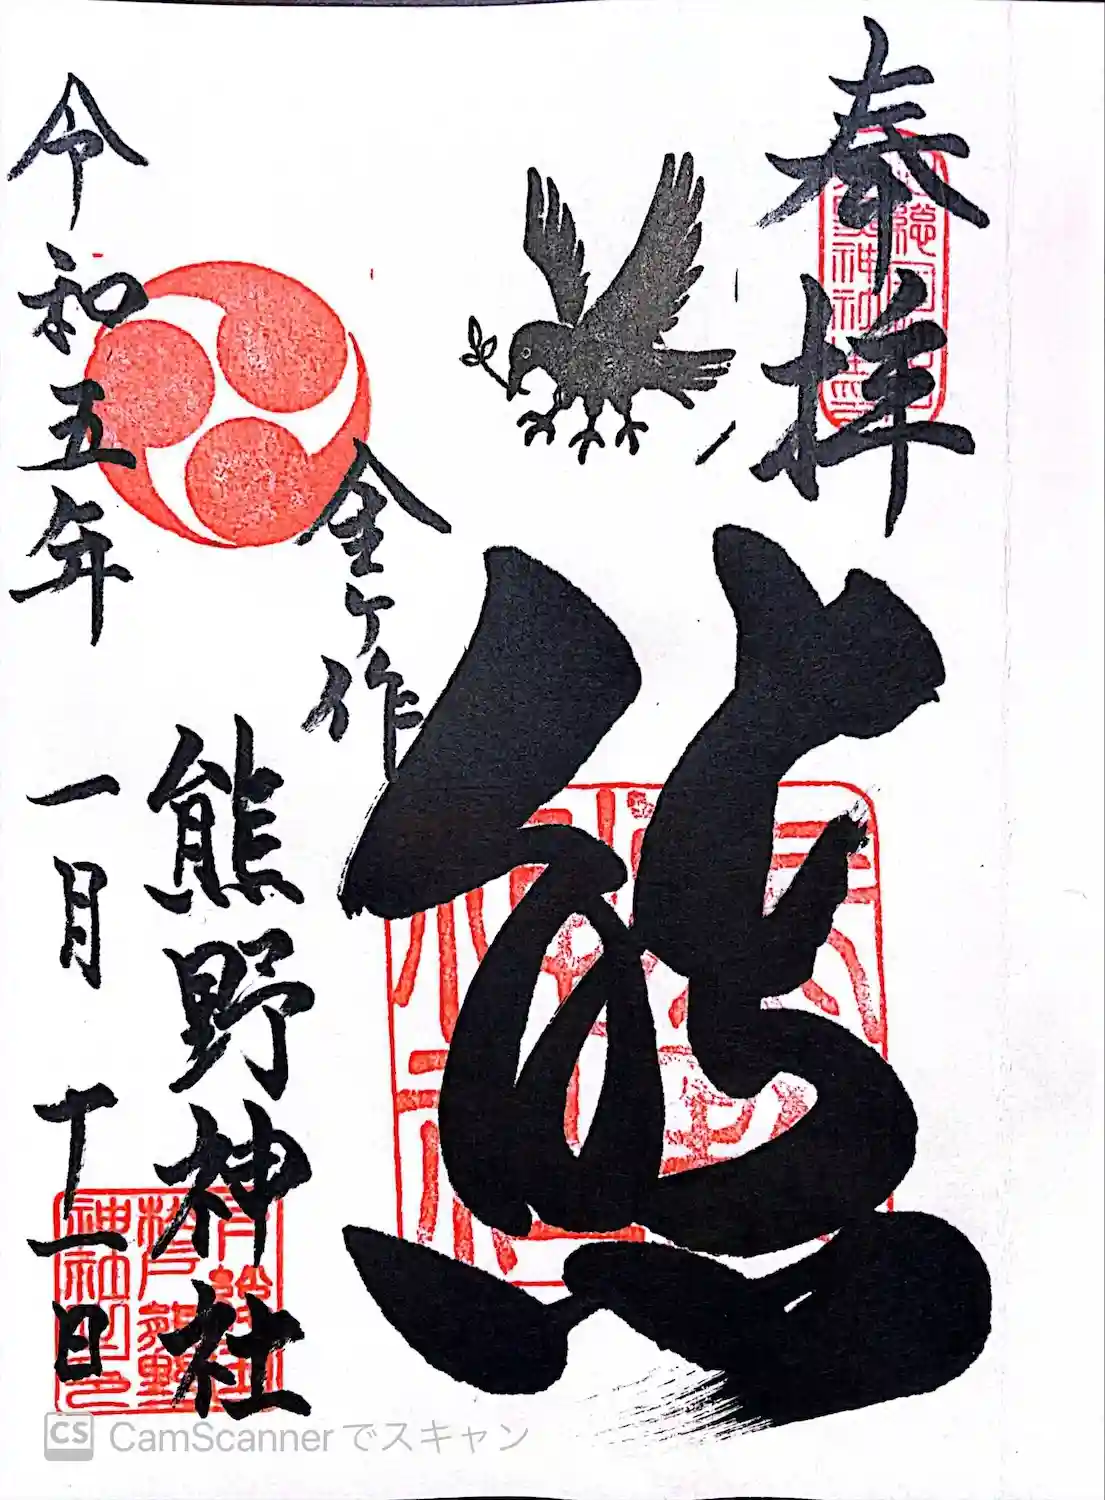 奉拝
熊
金ケ作
熊野神社
令和五年 一月 十一日
CS CamScannerでスキャン